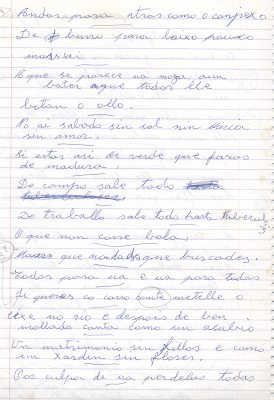 Andas para atras como o canjrexo
De burro para baixo pouco
mais
O que se parece ua moza aun
que todos lle
botan o ollo.
No ai sabado sin sol nin Muccia
sin amor.
Si estas asi de verde que faras
de madura
Do campo sale todo
Do traballo sale todo hasta
O que non corre bola.
que que buscades.
Todos para ua e ua para todos
Si queres co carro cante metelle o
eixe no rio e despois de ben
mollado canta como un asubio
Un matrimonio sin fillos e como
un Xardin sin flores.
Por culpa de ua perdelas todas